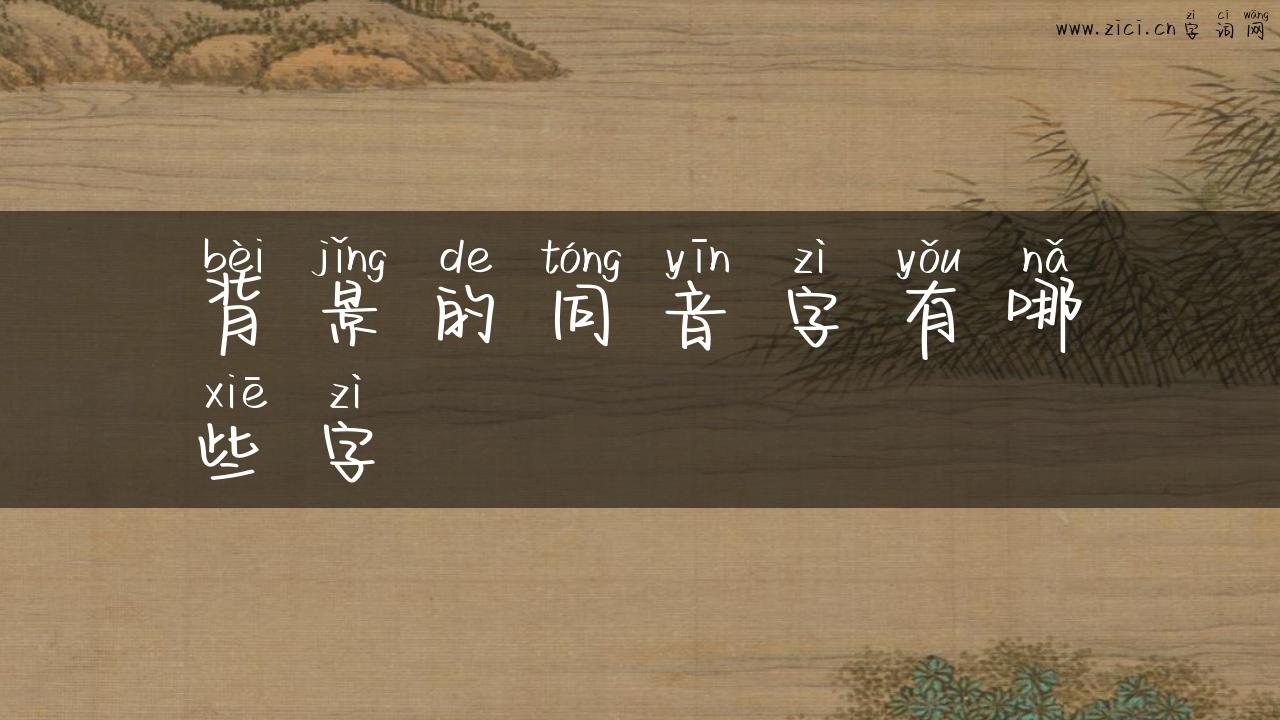 zì cí wǎng
www.zici.cn 字词网
bèi jǐng de tóng yīn zì yǒu nǎ
背景的同音字有哪
xiē zì
些字